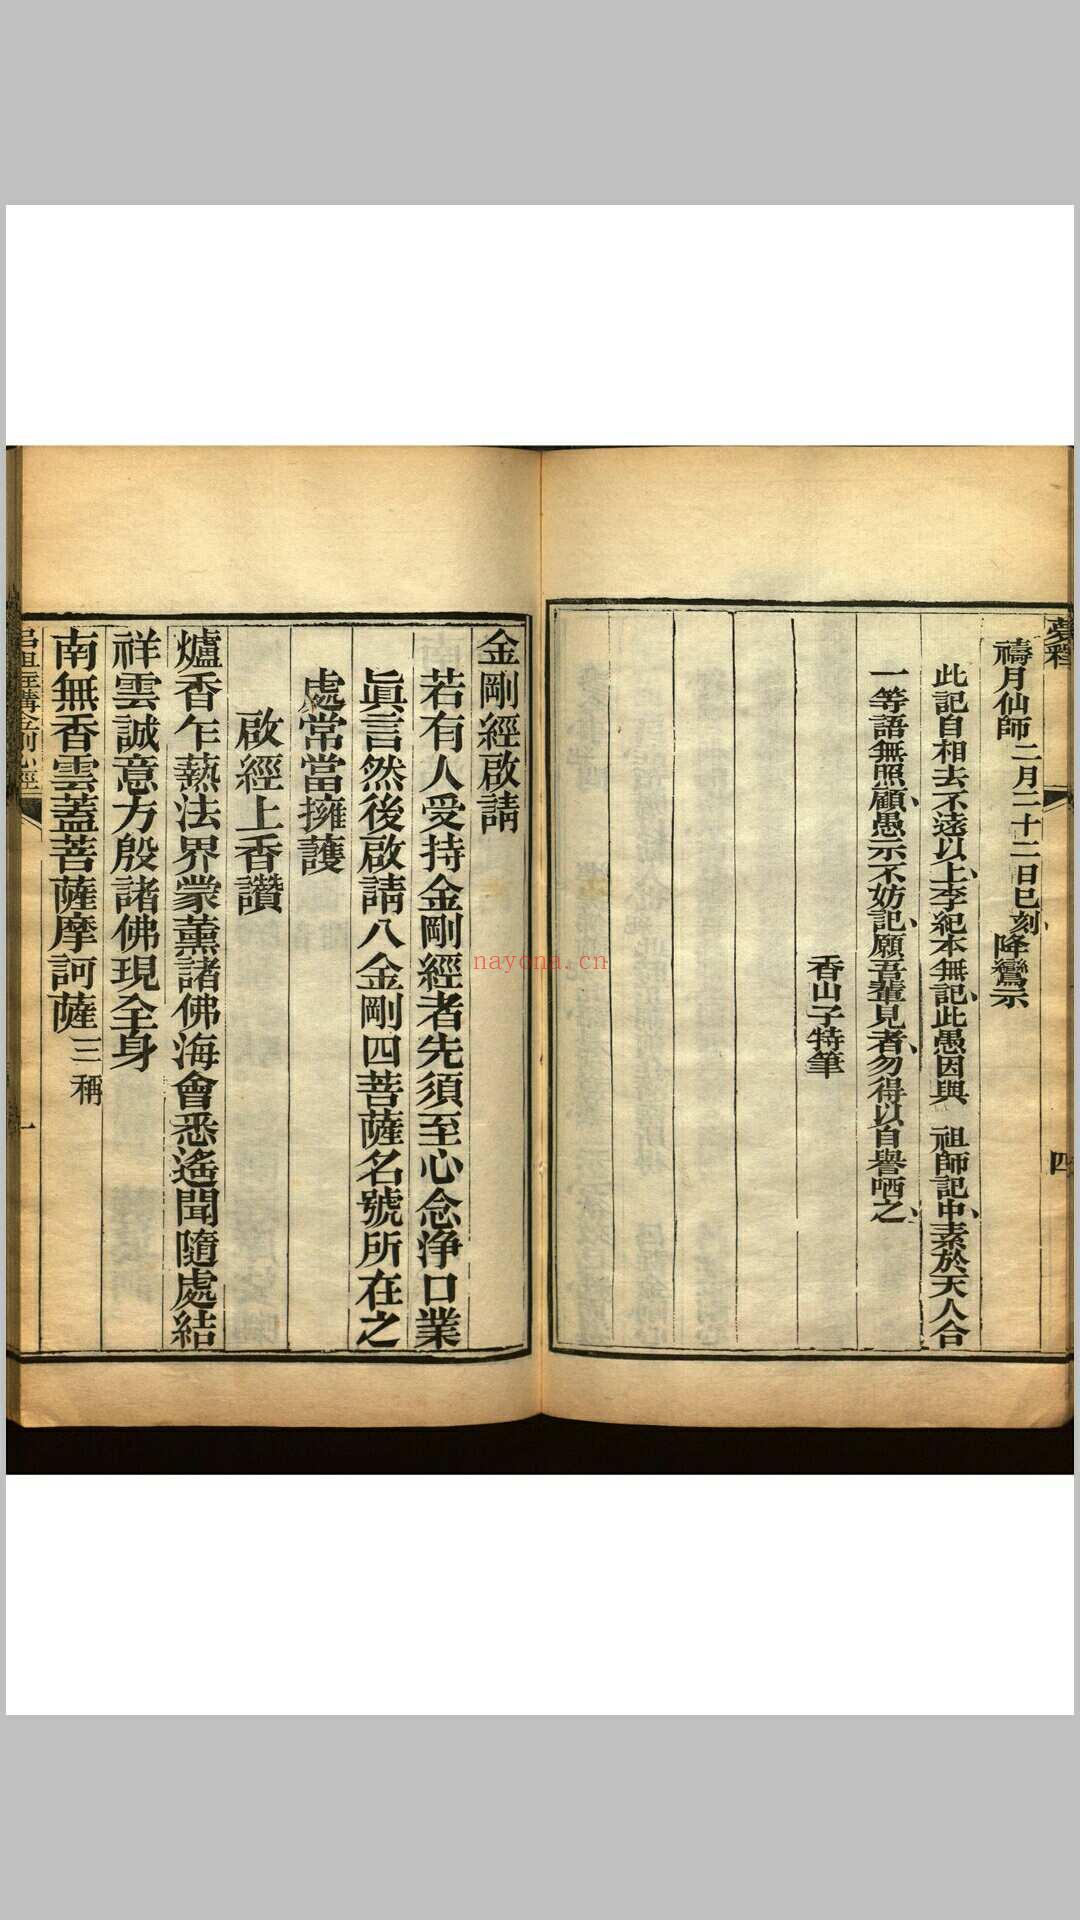 夢釋
四
禱月仙師二月二十二日巳刻降鸞示
此記自相去不遠以上李紀本無記此愚因與 祖師記中素於天人合
一等語無照顧愚示不妨記願吾輩見者勿得以自譽哂之
香山子特筆
金剛經啟請
若有人受持金剛經者先須至心念浄口業
眞言然後啟請八金剛四菩薩名號所在之
處常當擁護
啟經上香讚
爐香乍爇法界蒙薰諸佛海會悉遙聞隨處結
祥雲誠意方殷諸佛現全身
南無香雲蓋菩薩摩訶薩三稱
一
nayona.cn